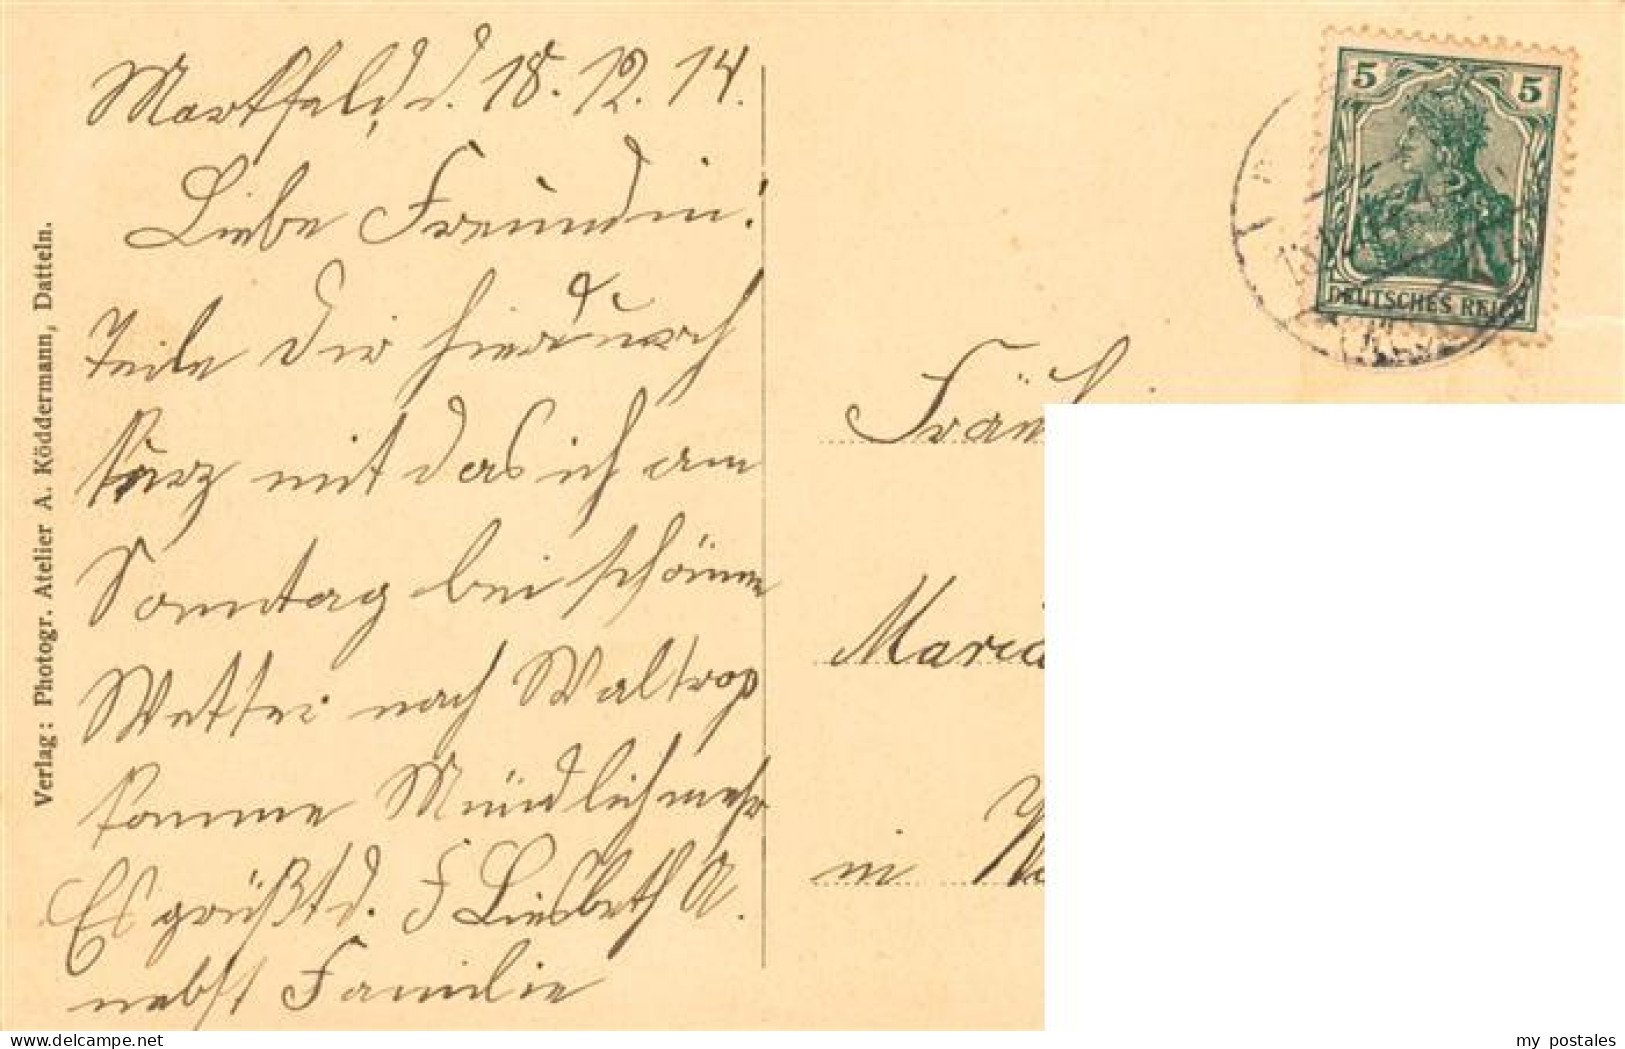 Verlag: Photogr. Atelier A. Köddermann, Datteln.
d. 18. 12. 14.
Liebe Freundin!
Teile Dir hierdurch
kurz mit das ich am
Sonntag bei schönem
Wetter nach Waltrop
komme Mündlich mehr
Es grüßt d. F Liesbeth A.
nebst Familie
5 5
DEUTSCHES REICH
Maria
in
www.delcampe.net
my_postales